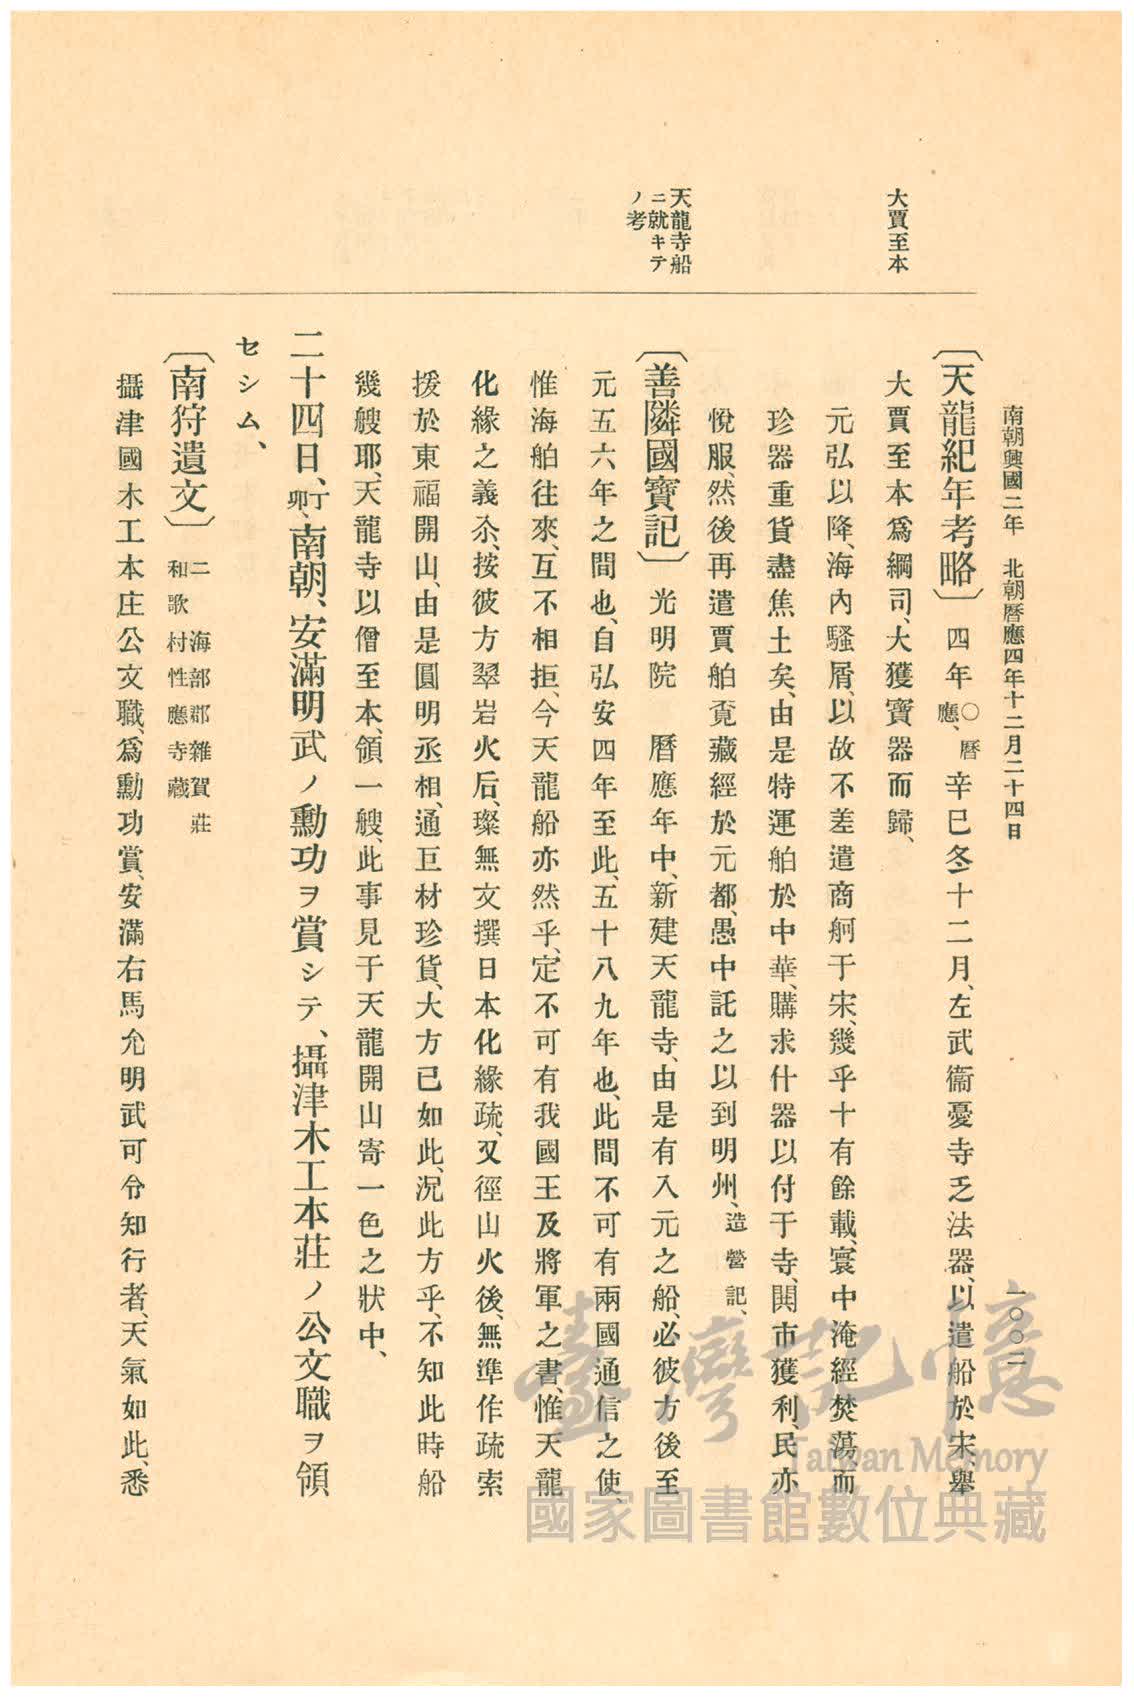 南朝興國二年　北朝曆應四年十二月二十四日
一〇〇二
大賈至本
天龍寺船
ニ就キテ
ノ考
〔天龍紀年考略〕四年〇曆應、辛巳冬十二月、左武衞憂寺乏法器、以遣船於宋、擧
大賈至本爲綱司、大獲寶器而歸、
元弘以降、海內騷屑、以故不差遣商舸于宋、幾乎十有餘載、寰中淹經焚蕩、而
珍器重貨盡焦土矣、由是特運舶於中華、購求什器以付于寺、開市獲利、民亦
悅服、然後再遣賈舶竟藏經於元都、愚中託之以到明州、造營記、
〔善隣國寶記〕光明院　曆應年中、新建天龍寺、由是有入元之船、必彼方後至
元五六年之間也、自弘安四年至此、五十八九年也、此間不可有兩國通信之使、
惟海舶往來、互不相拒、今天龍船亦然乎、定不可有我國王及將軍之書、惟天龍
化緣之義尒、按彼方翠岩火后、璨無文撰日本化緣疏、又徑山火後、無準作疏索
援於東福開山、由是圓明丞相、通巨材珍貨、大方已如此、況此方乎、不知此時船
幾艘耶、天龍寺以僧至本、領一艘、此事見于天龍開山寄一色之狀中、
二十四日、丁卯、南朝、安滿明武ノ勳功ヲ賞シテ、攝津木工本莊ノ公文職ヲ領
セシム、
〔南狩遺文〕二　海部郡雜賀莊
和歌村性應寺藏
攝津國木工本庄公文職、爲勳功賞、安滿右馬允明武可令知行者、天氣如此、悉
臺灣記憶
Taiwan Memory
國家圖書館數位典藏